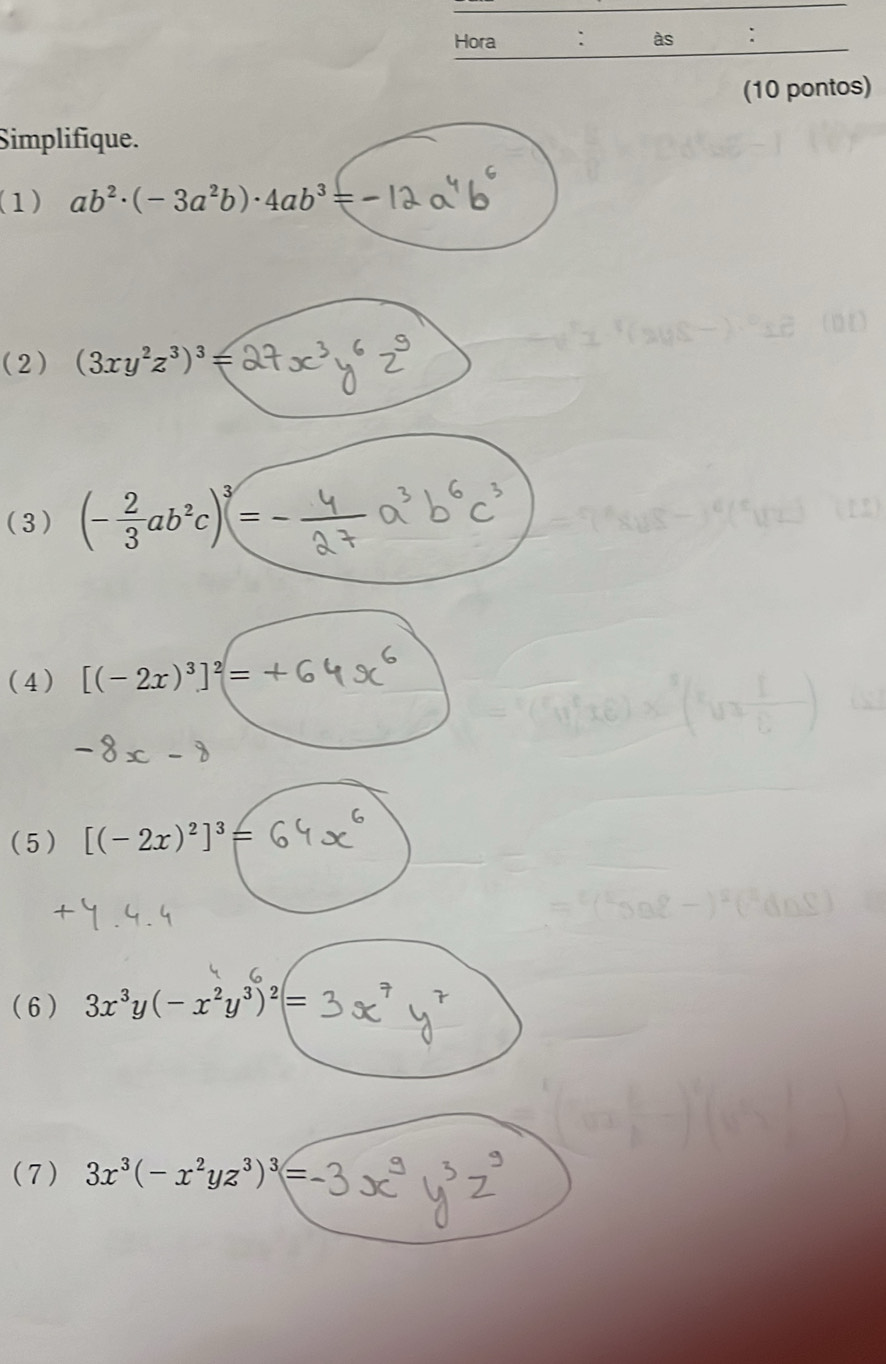 Hora : às :
(10 pontos)
Simplifique.
(1) ab²·(−3a²b)·4ab³ = −12a⁴b⁶
(2) (3xy²z³)³ = 27x³y⁶z⁹
(3) (−2/3 ab²c)³ = −4/27 a³b⁶c³
(4) [(−2x)³]² = +64x⁶
−8x − 8
(5) [(−2x)²]³ = 64x⁶
+4.4.4
4 6
(6) 3x³y(−x²y³)² = 3x⁷y⁷
(7) 3x³(−x²yz³)³ = −3x⁹y³z⁹